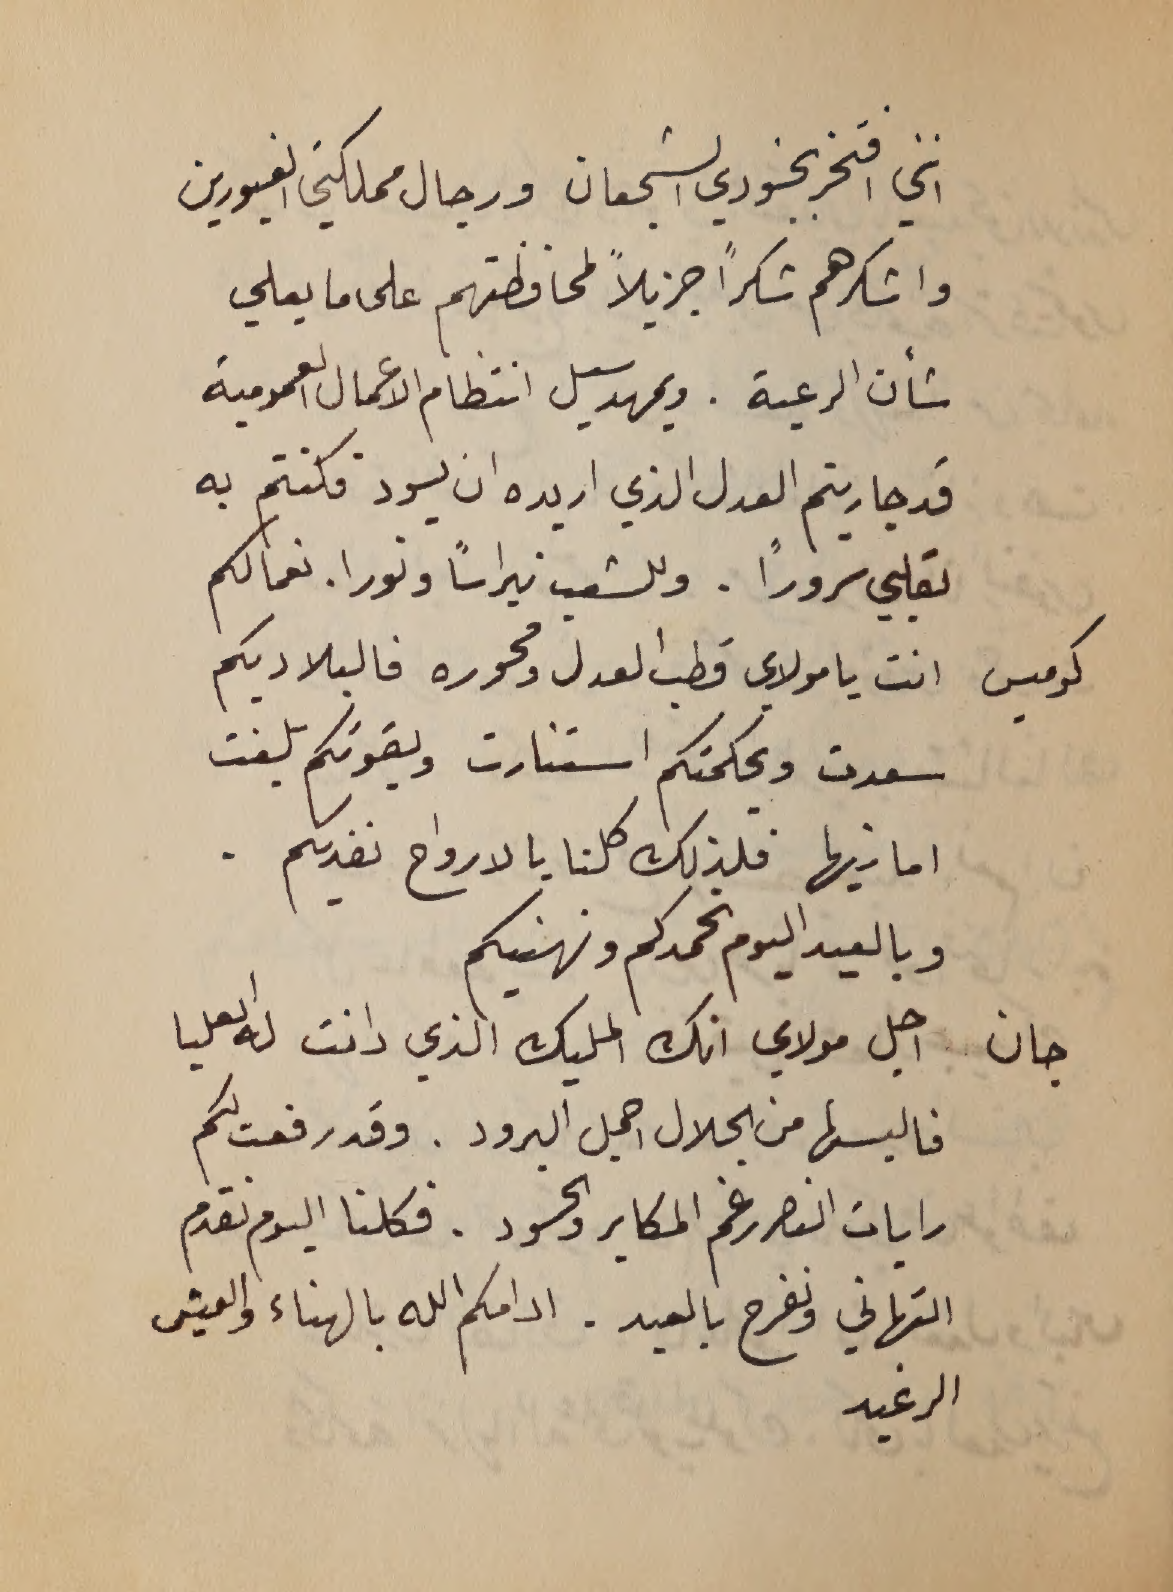 انني افتخر بجنودي الشجعان ورجال مملكتي الغيورين
واشكرهم شكراً جزيلاً لمحافظتهم على ما يعلي
شأن الرعية . ويمهد سبيل انتظام الاعمال العمومية
قد جاريتم العدل الذي اريده ان يسود فكنتم به
لقلبي سروراً . وللشعب نبراساً ونورا . نعمالكم
كوميس انت يا مولاي قطب العدل ومحوره فالبلاد بكم
سعدت وبحكمتكم استنارت وبقوتكم بلغت
امانيها فلذلك كلنا بالارواح نفديكم .
وبالعيد اليوم نحمدكم ونهنيكم
جان اجل مولاي انك المليك الذي دانت له العليا
فالبسها من الجلال اجمل البرود . وقد رفعت لكم
رايات النصر رغم المكابر والحسود . فكلنا اليوم نقدم
التهاني ونفرح بالعيد . ادامكم الله بالهناء والعيش
الرغيد